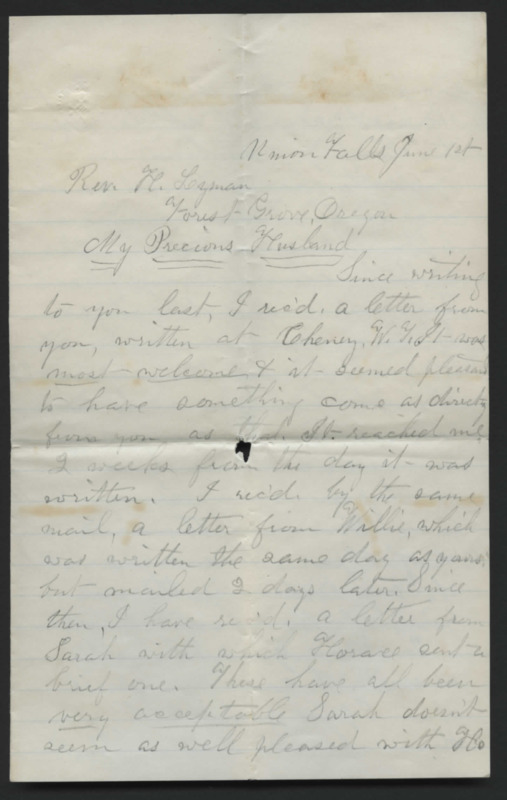 Union Falls June 1st
Rev. H. Lyman
Forest Grove, Oregon
My Precious Husband
Since writing
to you last, I rec'd. a letter from
you, written at Cheney, W. T. It was
most welcome & it seemed pleasant
to have something come as directly
from you, as that. It reached me
2 weeks from the day it was
written. I rec'd. by the same
mail, a letter from Willie, which
was written the same day as yours,
but mailed 2 days later. Since
then, I have rec'd. a letter from
Sarah with which Horace sent a
brief one. These have all been
very acceptable Sarah doesn't
seem as well pleased with